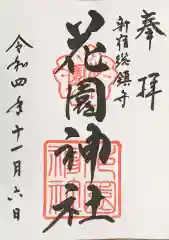 奉拝
新宿総鎮守
花園神社
令和四年十一月六日